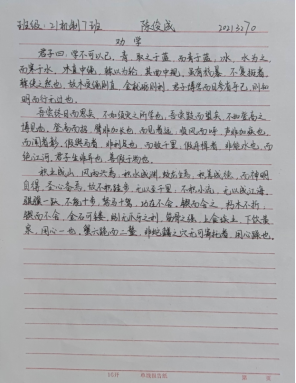 班级：21机制7班 陈俊成 2021321270
劝学
君子曰：学不可以已。青，取之于蓝，而青于蓝；冰，水为之
而寒于水。木直中绳，輮以为轮，其曲中规，虽有槁暴，不复挺者，
輮使之然也。故木受绳则直，金就砺则利，君子博学而日参省乎己，则知
明而行无过也。
吾尝终日而思矣，不如须臾之所学也，吾尝跂而望矣，不如登高之
博见也。登高而招，臂非加长也，而见者远，顺风而呼，声非加疾也，
而闻者彰。假舆马者，非利足也，而致千里，假舟楫者，非能水也，而
绝江河，君子生非异也，善假于物也。
积土成山，风雨兴焉，积水成渊，蛟龙生焉，积善成德，而神明
自得，圣心备焉。故不积跬步，无以至千里，不积小流，无以成江海，
骐骥一跃，不能十步，驽马十驾，功在不舍。锲而舍之，朽木不折，
锲而不舍，金石可镂。蚓无爪牙之利，筋骨之强，上食埃土，下饮黄
泉，用心一也。蟹六跪而二螯，非蛇鳝之穴无可寄托者，用心躁也。